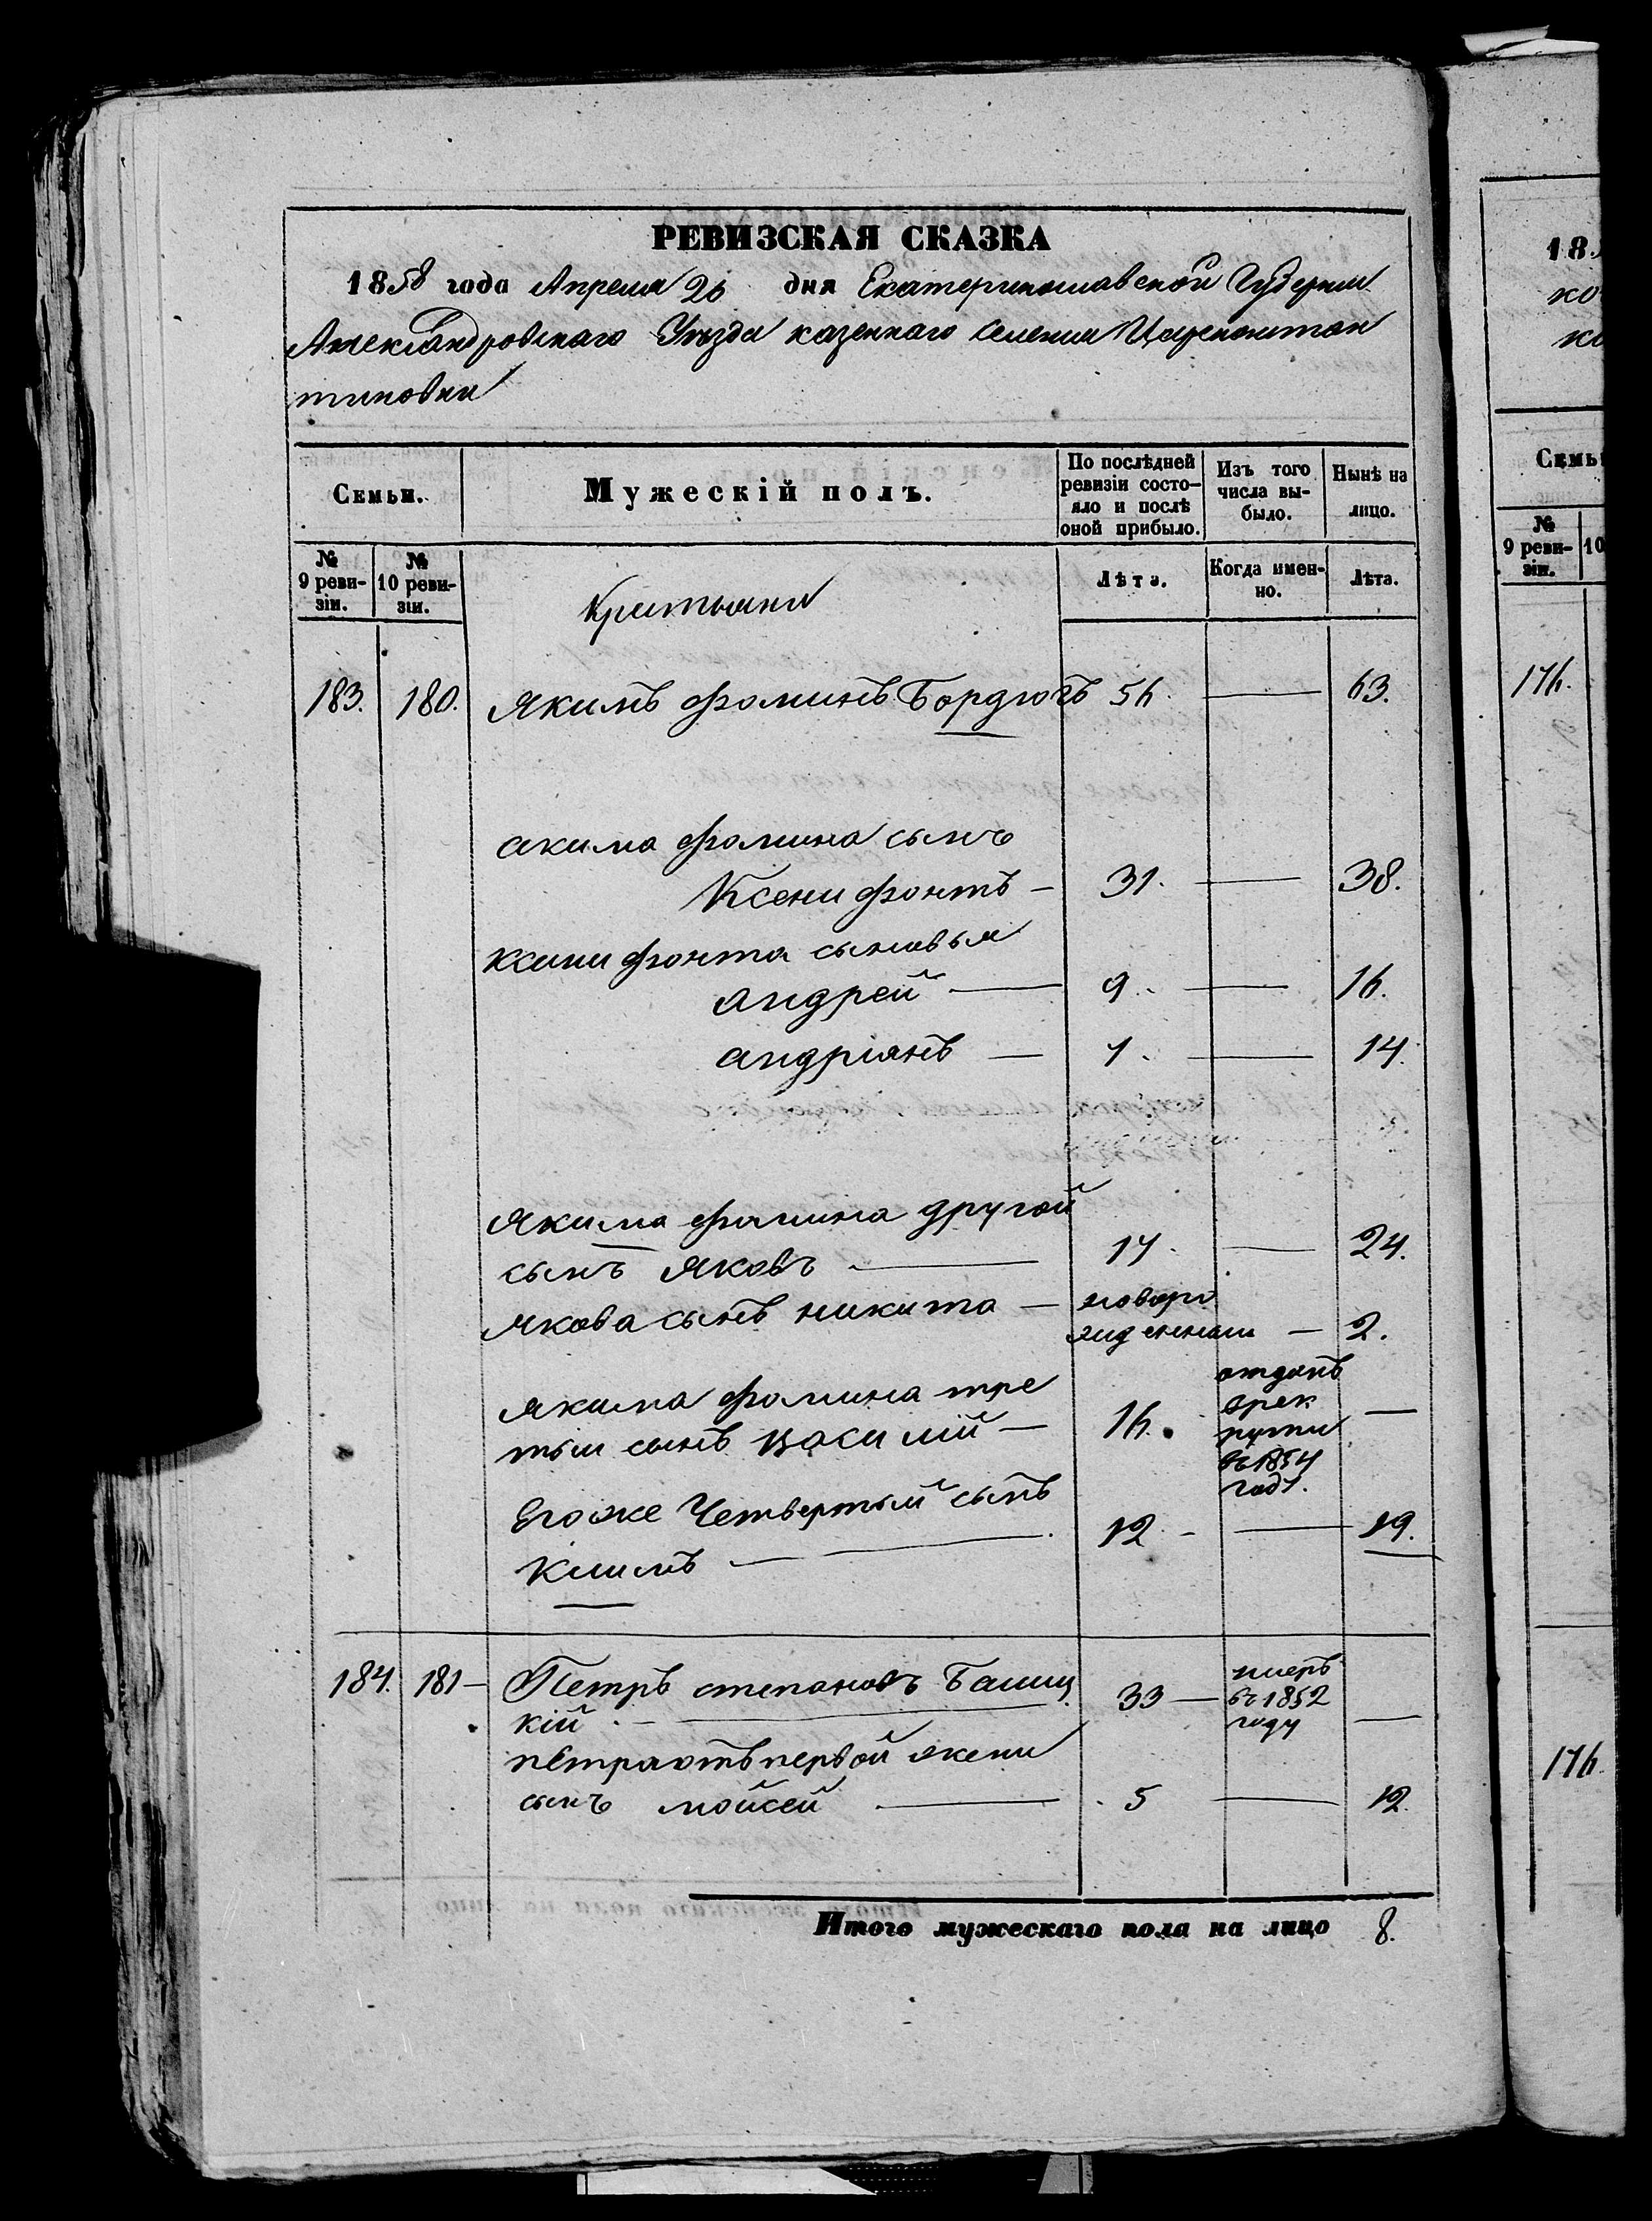 РЕВИЗСКАЯ СКАЗКА
1858 года Апреля 26 дня Екатеринославской Губернии
Александровскаго Уѣзда казеннаго селения Цареконстан
тиновки
Семьи.
Мужескій полъ.
По послѣдней ревизіи состо-
яло и послѣ оной прибыло.
Изъ того числа вы-
было.
Нынѣ на лицо.
№ 9 реви-
зіи.
№ 10 реви-
зіи.
Лѣта.
Когда имен-
но.
Лѣта.
183. 180. Якимъ Фоминъ Бордюгъ 56. — 63.
акима Фомина сынъ
Ксенифонтъ — 31. — 38.
Ксенифонта сыновья
андрей — 9. — 16.
андріянъ — 7. — 14.
Якима Фомина другой
сынъ Яковъ — 17. — 24.
Якова сынъ никита — новоро
жденный — 2.
Якима Фомина тре
тьи сынъ василій — 16. отданъ
врек
руты
въ 1854
году. —
Егоже Четвертый сынъ
Климъ — 12. — 19.
184. 181 — Петръ степановъ Балиц
кій — 33 — умеръ
въ 1852
году —
пЕтра отъ первой жены
сынъ мойсей — 5 — 12.
Итого мужескаго пола на лицо 8.
18
ко
Семьи
№ 9 реви-
зіи.
10
176.
176.